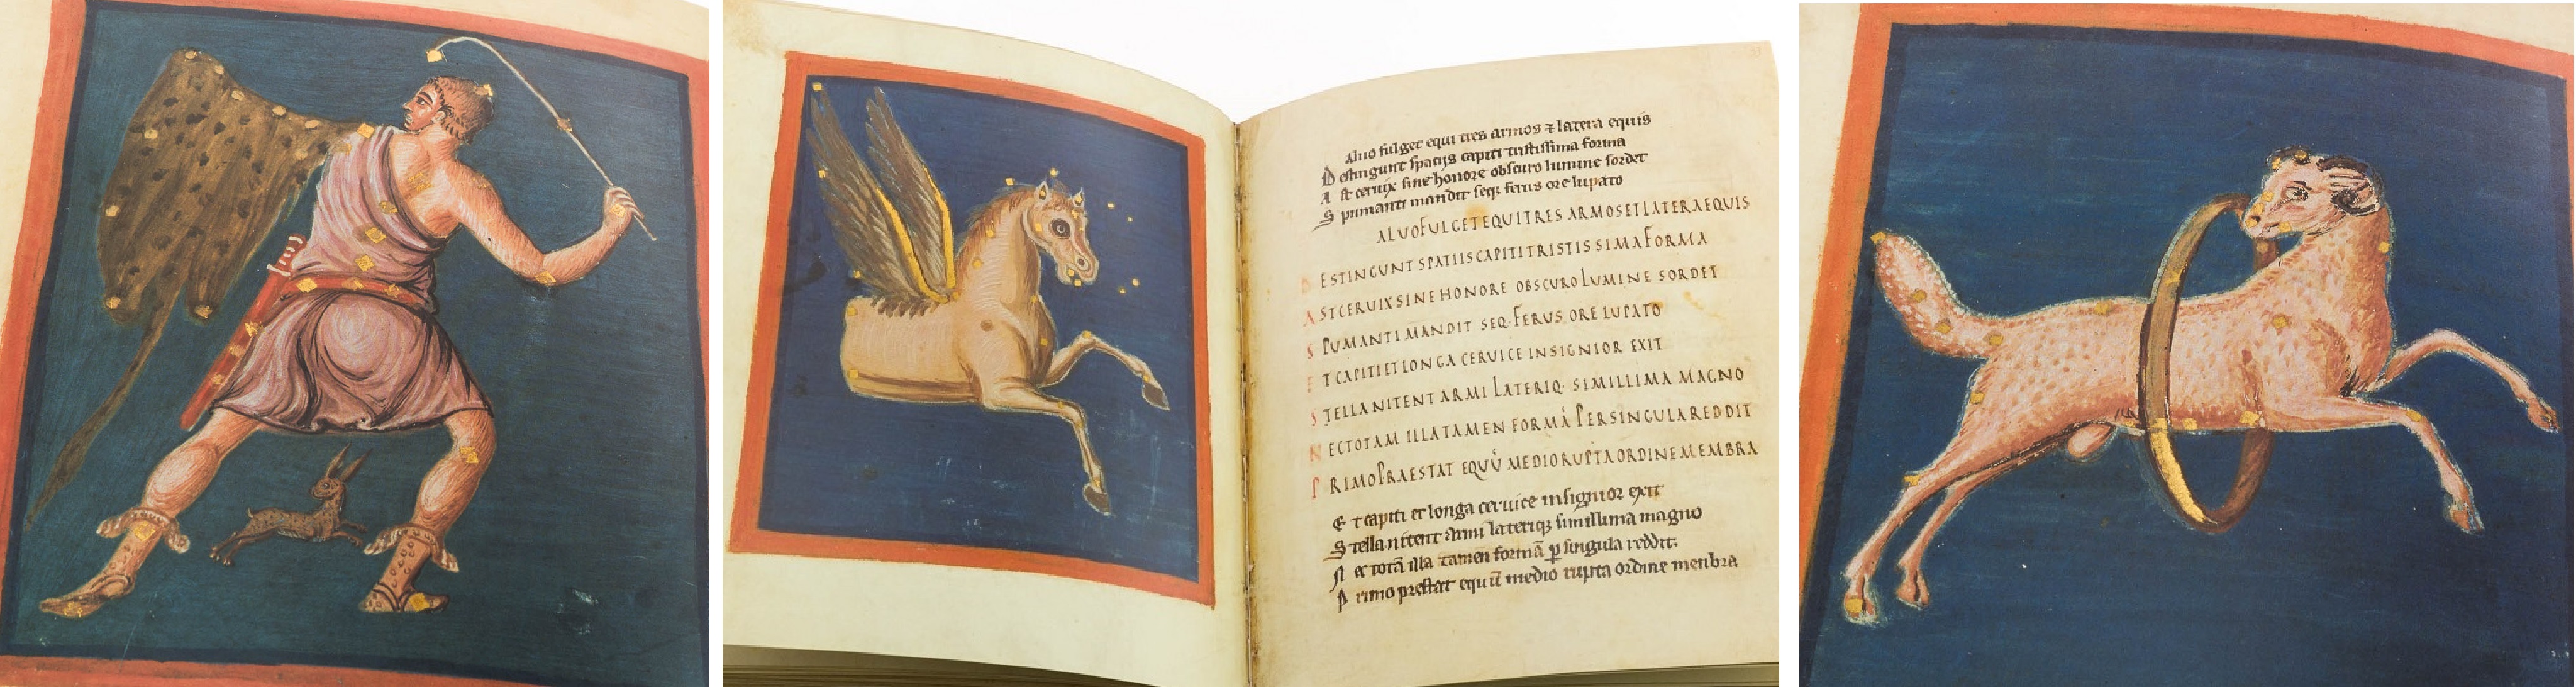 31
Aluo fulget equi tres armos ⁊ latera equis
D estingunt spatijs capiti tristissima forma
A st ceruix sine honore obscuro lumine sordet
S pumanti mandit seq; ferus ore lupato
ALVOFULGETEQUITRES ARMOSETLATERAEQUIS
D ESTINGUNT SPATIISCAPITITRISTISSIMAFORMA
A STCERUIXSINEHONORE OBSCUROLUMINE SORDET
S PUMANTIMANDIT SEQ·FERUS ORE LUPATO
E TCAPITIETLONGA CERUICE INSIGNIOR EXIT
S TELLANITENT ARMI LATERIQ· SIMILLIMA MAGNO
N ECTOTAM ILLATAMEN FORMĀ PERSINGULAREDDIT
P RIMOPRAESTAT EQUŪ MEDIORUPTAORDINEMEMBRA
E t capiti et longa ceruice insignior exit
S tella nitent armi lateriq; simillima magno
N ec totā illa tamen formā ꝑ singula reddit.
P rimo prestat equū medio rupta ordine membra